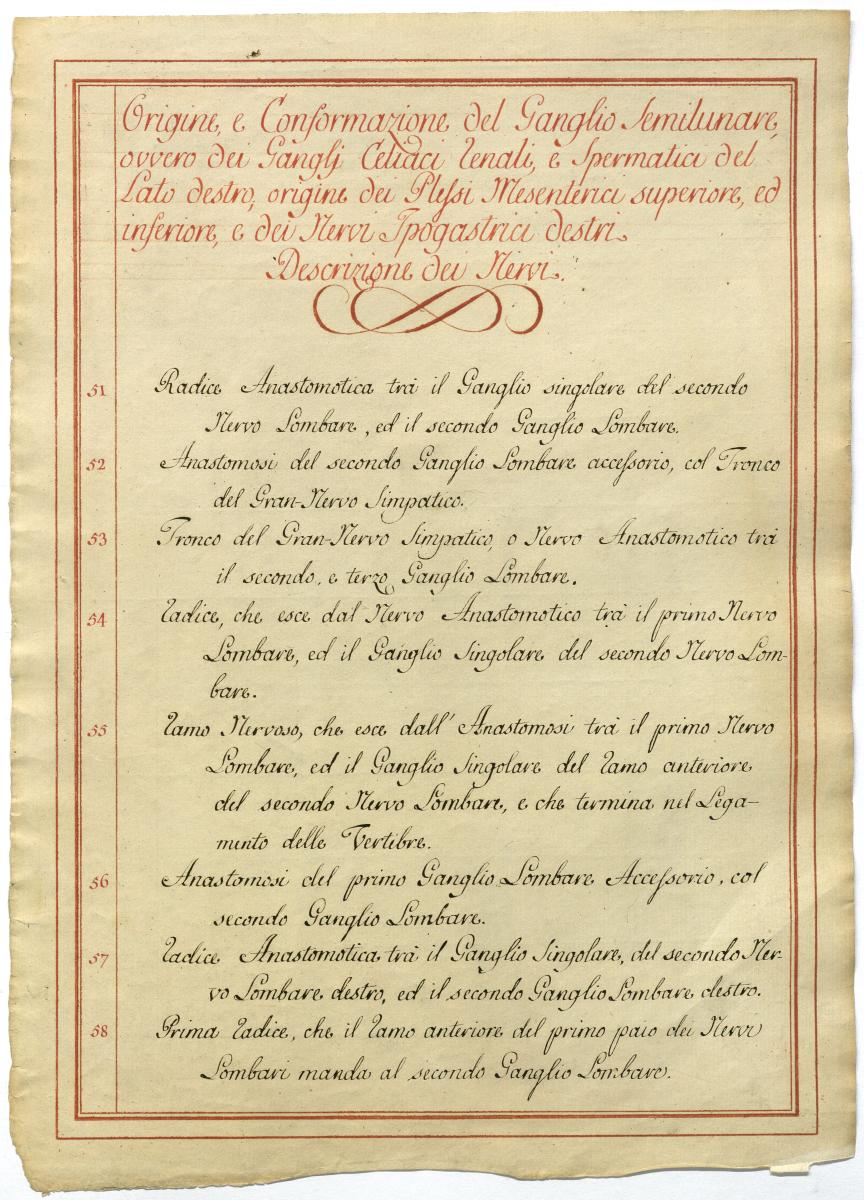 Origine, e Conformazione del Ganglio Semilunare,
ovvero dei Ganglj Celiaci Renali, e Spermatici del
Lato destro, origine dei Plessi Mesenterici superiore, ed
inferiore, e dei Nervi Ipogastrici destri.
Descrizione dei Nervi.
51 Radice Anastomotica trà il Ganglio singolare del secondo
Nervo Lombare, ed il secondo Ganglio Lombare.
52 Anastomosi del secondo Ganglio Lombare accessorio, col Tronco
del Gran-Nervo Simpatico.
53 Tronco del Gran-Nervo Simpatico, o Nervo Anastomotico trà
il secondo, e terzo Ganglio Lombare.
54 Radice, che esce dal Nervo Anastomotico trà il primo Nervo
Lombare, ed il Ganglio Singolare del secondo Nervo Lom-
bare.
55 Ramo Nervoso, che esce dall' Anastomosi trà il primo Nervo
Lombare, ed il Ganglio Singolare del Ramo anteriore
del secondo Nervo Lombare, e che termina nel Lega-
mento delle Vertibre.
56 Anastomosi del primo Ganglio Lombare Accessorio, col
secondo Ganglio Lombare.
57 Radice Anastomotica trà il Ganglio Singolare, del secondo Ner-
vo Lombare destro, ed il secondo Ganglio Lombare destro.
58 Prima Radice, che il Ramo anteriore del primo paio dei Nervi
Lombari manda al secondo Ganglio Lombare.